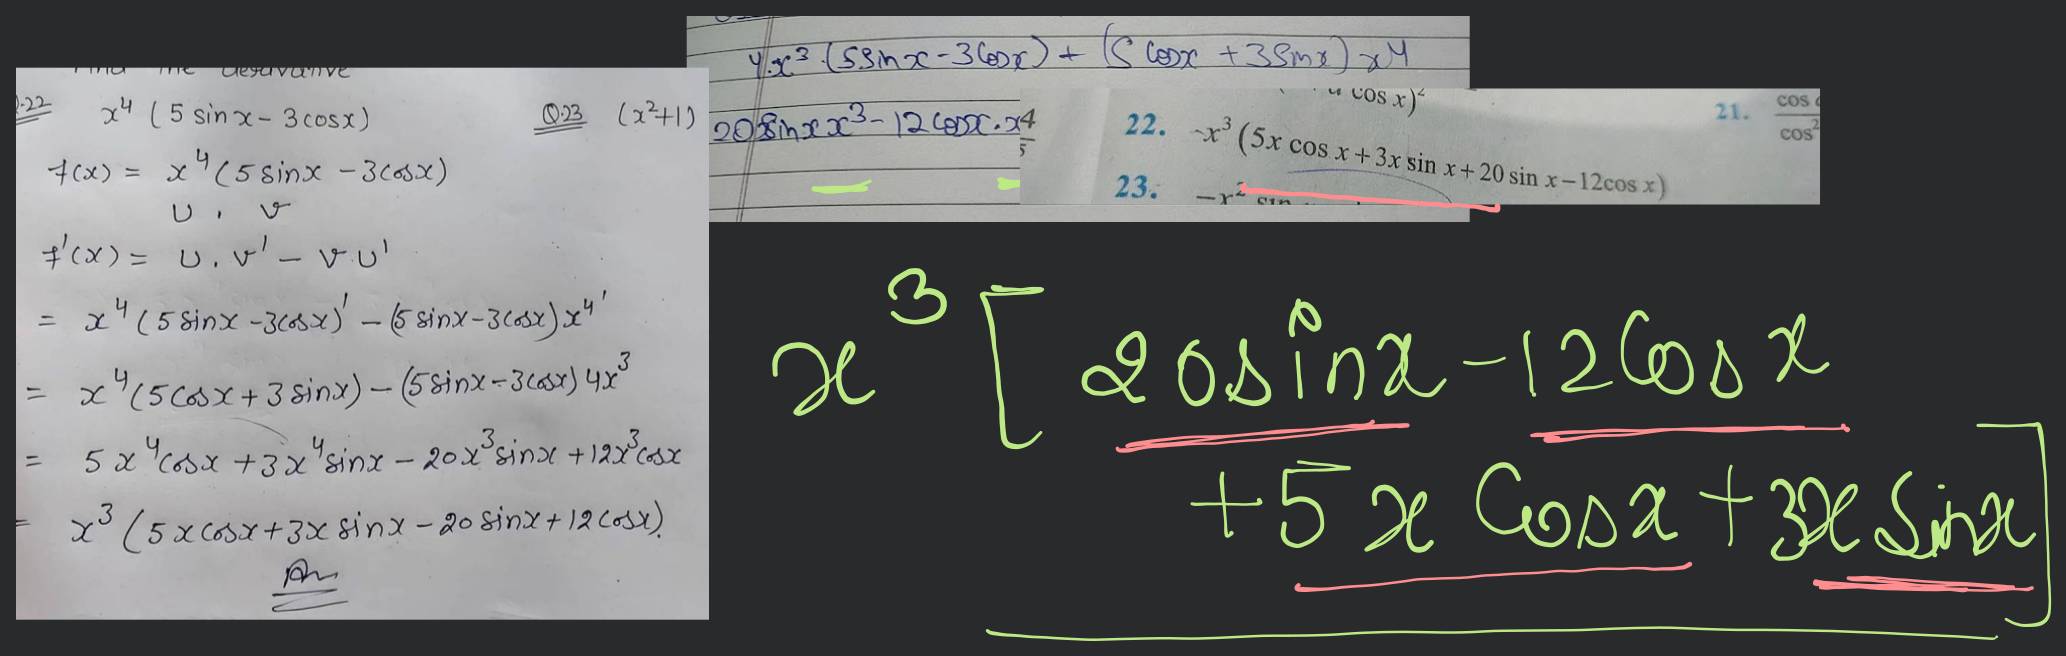 Find the derivative
Q.22 x⁴ (5 sin x - 3 cos x) Q.23 (x²+1)
f(x) = x⁴ (5 sin x - 3 cos x)
U . V
f'(x) = U . V' - V.U'
= x⁴ (5 sin x - 3 cos x)' - (5 sin x - 3 cos x) x⁴'
= x⁴ (5 cos x + 3 sin x) - (5 sin x - 3 cos x) 4x³
= 5x⁴ cos x + 3x⁴ sin x - 20x³ sin x + 12x³ cos x
= x³ (5x cos x + 3x sin x - 20 sin x + 12 cos x).
Ans
4x³ . (5 sin x - 3 cos x) + (5 cos x + 3 sin x) x⁴
20 sin x x³ - 12 cos x . x
4
5
cos x)²
22. -x³ (5x cos x + 3x sin x + 20 sin x - 12 cos x)
23. -x² sin
21. cos
cos²
x³ [ 20 sin x - 12 cos x
+ 5x cos x + 3x sin x ]